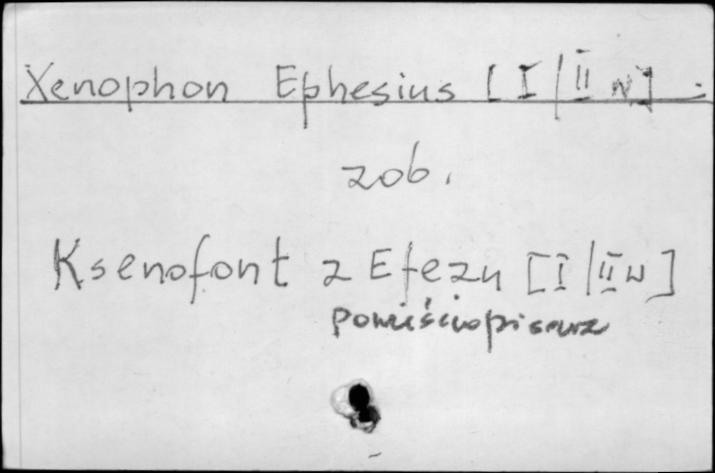 Xenophon Ephesius [I/II w] -
zob.
Ksenofont z Efezu [I/II w]
powieściopisarz